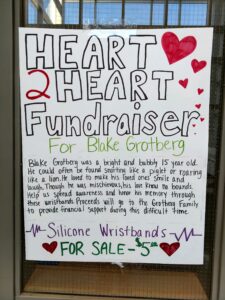 HEART
2 HEART
Fundraiser
For Blake Grotberg
Blake Grotberg was a bright and bubbly 15 year old.
He could often be found snorting like a piglet or roaring
like a lion. He loved to make his loved ones' smile and
laugh. Though he was mischievous, his love knew no bounds.
Help us spread awareness and honor his memory through
these wristbands. Proceeds will go to the Grotberg Family
to provide financial support during this difficult time.
Silicone Wristbands
FOR SALE - $5.00